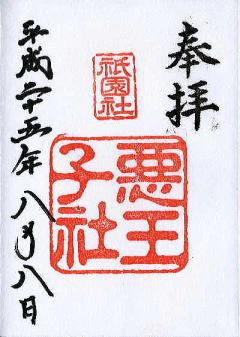 奉拝
祇園社
悪王
子社
平成二十五年八月八日